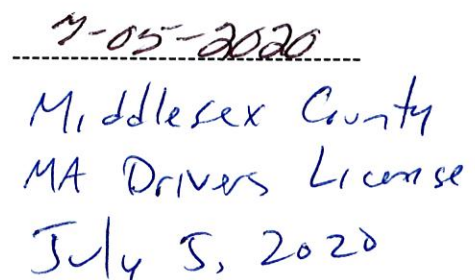 7-05-2020
Middlesex County
MA Drivers License
July 5, 2020